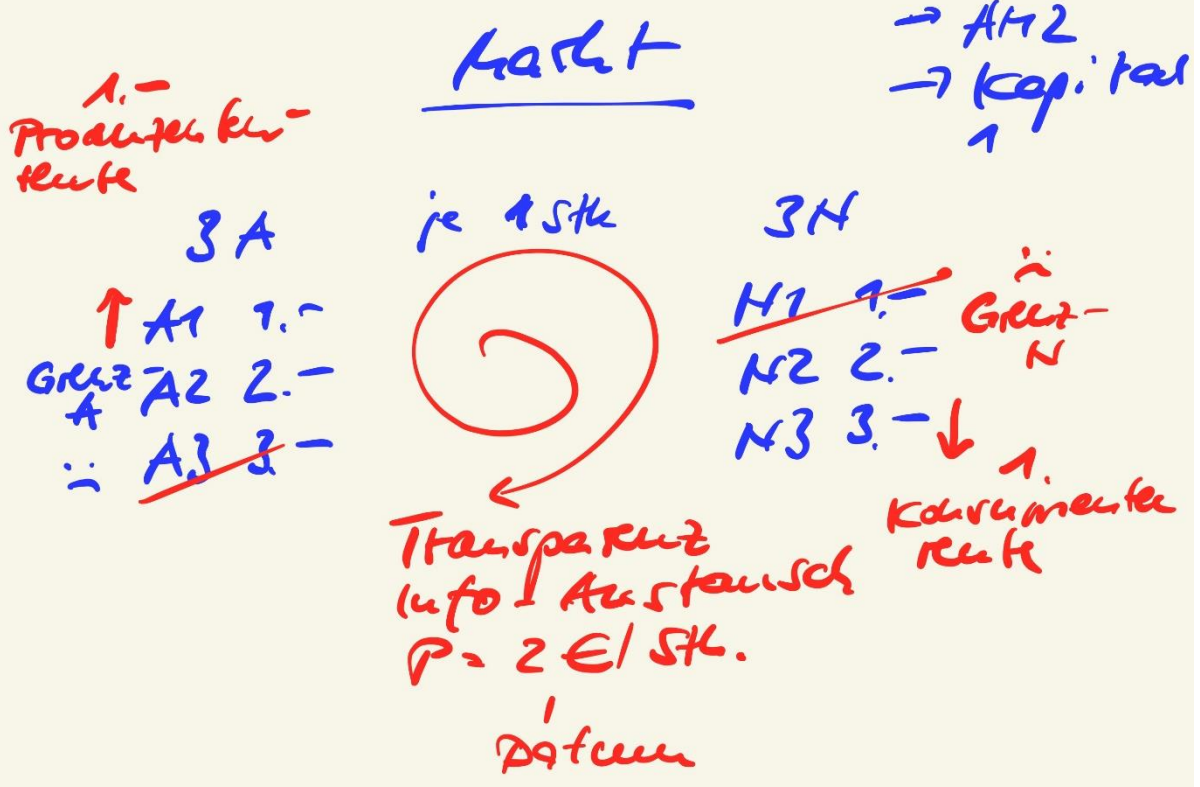 Markt
→ AM2
→ Kapital
1
1.-
Produzenten-
rente
3 A
je 1 Stk
3 N
A1 1.-
Grenz-
A
A2 2.-
A3 3.-
N1 1.-
N2 2.-
N3 3.-
Grenz-
N
1.
Konsumenten
rente
Transparenz
Info Austausch
P = 2 €/Stk.
Datum